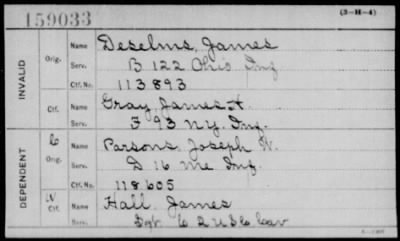 159033
(3-H-4)
INVALID
Orig.
Name Deselms, James
Serv. B 122 Ohio Inf
Ctf. No. 113893
Ctf.
Name Gray, James A.
Serv. F 93 N.Y. Inf.
DEPENDENT
C
Orig.
Name Parsons, Joseph W.
Serv. D 16 Me Inf.
Ctf. No. 118605
W
Ctf.
Name Hall, James
Serv. Sgt C 2 U S C Cav